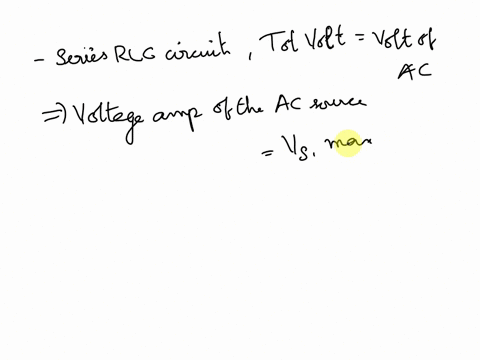 - Series RLC circuit, Tot Volt = Volt of
AC
=> Voltage amp of the AC source
= Vs, max